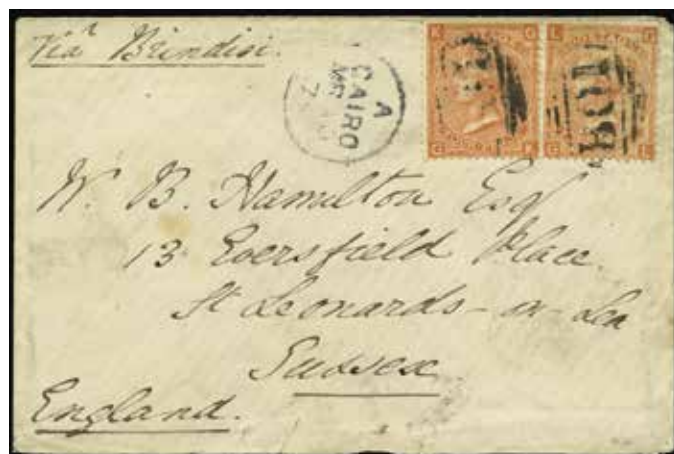 Via Brindisi.
A
CAIRO
MR
W. B. Hamilton Esq
13 Eversfield Place
St Leonards-on-Sea
Sussex
England.
K G
G K
L G
G L
B01